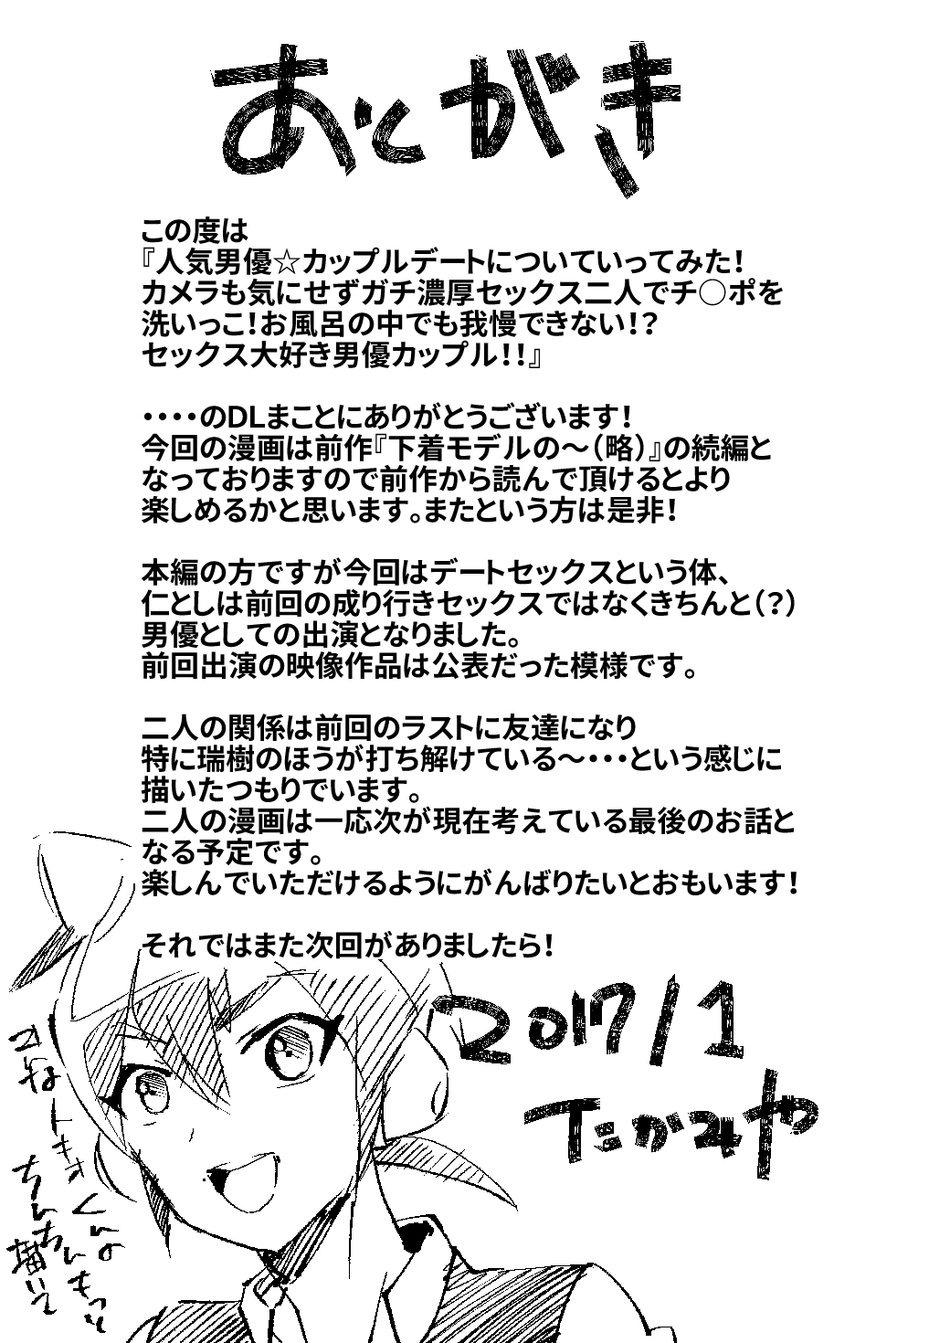 あとがき
この度は
『人気男優☆カップルデートについていってみた！
カメラも気にせずガチ濃厚セックス二人でチ○ポを
洗いっこ！お風呂の中でも我慢できない！？
セックス大好き男優カップル！！』
・・・・のDLまことにありがとうございます！
今回の漫画は前作『下着モデルの～（略）』の続編と
なっておりますので前作から読んで頂けるとより
楽しめるかと思います。またという方は是非！
本編の方ですが今回はデートセックスという体、
仁としは前回の成り行きセックスではなくきちんと（？）
男優としての出演となりました。
前回出演の映像作品は公表だった模様です。
二人の関係は前回のラストに友達になり
特に瑞樹のほうが打ち解けている～・・・という感じに
描いたつもりでいます。
二人の漫画は一応次が現在考えている最後のお話と
なる予定です。
楽しんでいただけるようにがんばりたいとおもいます！
それではまた次回がありましたら！
2017/1
たかみや
トキオくんの
ちんちんもっと
描いて